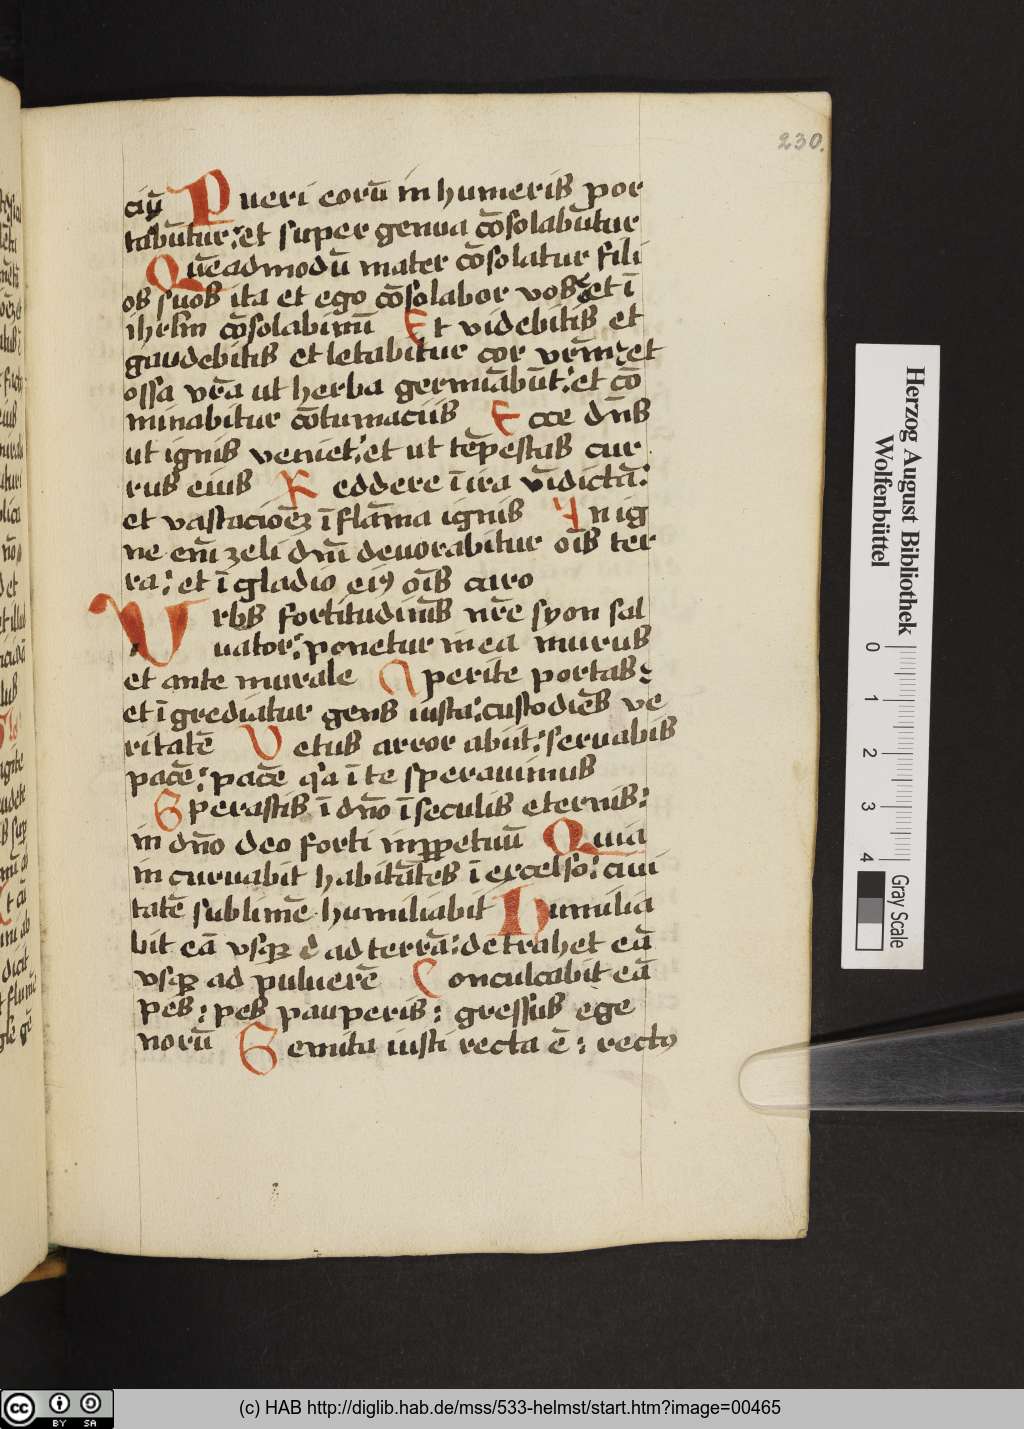 230.
ciū Pueri eorū in humeris por
tabūtur: et super genua cōsolabūtur
Quēadmodū mater cōsolatur fili
os suos ita et ego cōsolabor vos: et ī
ihrlm cōsolabimī Et videbitis et
gaudebitis et letabitur cor vr̄m: et
ossa vr̄a ut herba germīabūt: et cō
minabitur cōtumaciis Ecce dn̄s
ut ignis veniet: et ut tēpestas cur
rus eius Reddere ī ira vīdictā:
et vastacioēz ī flāma ignis In ig
ne em̄ zeli dn̄i deuorabitur oīs ter
ra: et ī gladio eiꝰ oīs caro
Urbs fortitudinis nr̄e syon sal
uator: ponetur in ea murus
et ante murale Aperite portas:
et īgrediatur gens iusta: custodiēs ve
ritatē Vetus arror abiit: seruabis
pacē: pacē qꝛa ī te sperauimus
Sperastis ī dn̄o ī seculis eternis:
in dn̄o deo forti inꝑpetuū Quia
incuruabit habitātes ī excelso: ciui
tatē sublimē humiliabit Humilia
bit eā vsqꝫ ad terrā: detrahet eā
vsqꝫ ad puluerē Conculcabit eā
pes: pes pauperis: gressus ege
norū Semita iusti recta ē: rectꝰ
Herzog August Bibliothek
Wolfenbüttel
0 1 2 3 4
Gray Scale
cc BY SA
(c) HAB http://diglib.hab.de/mss/533-helmst/start.htm?image=00465